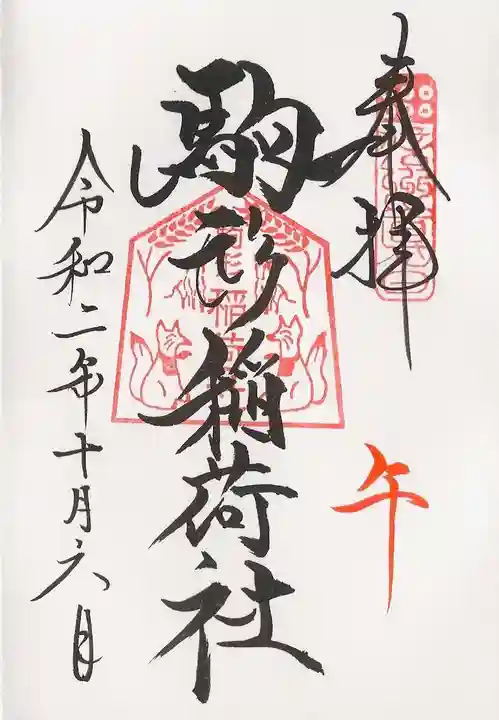 奉拝
午
駒形稲荷社
稲荷
令和二年十月六日